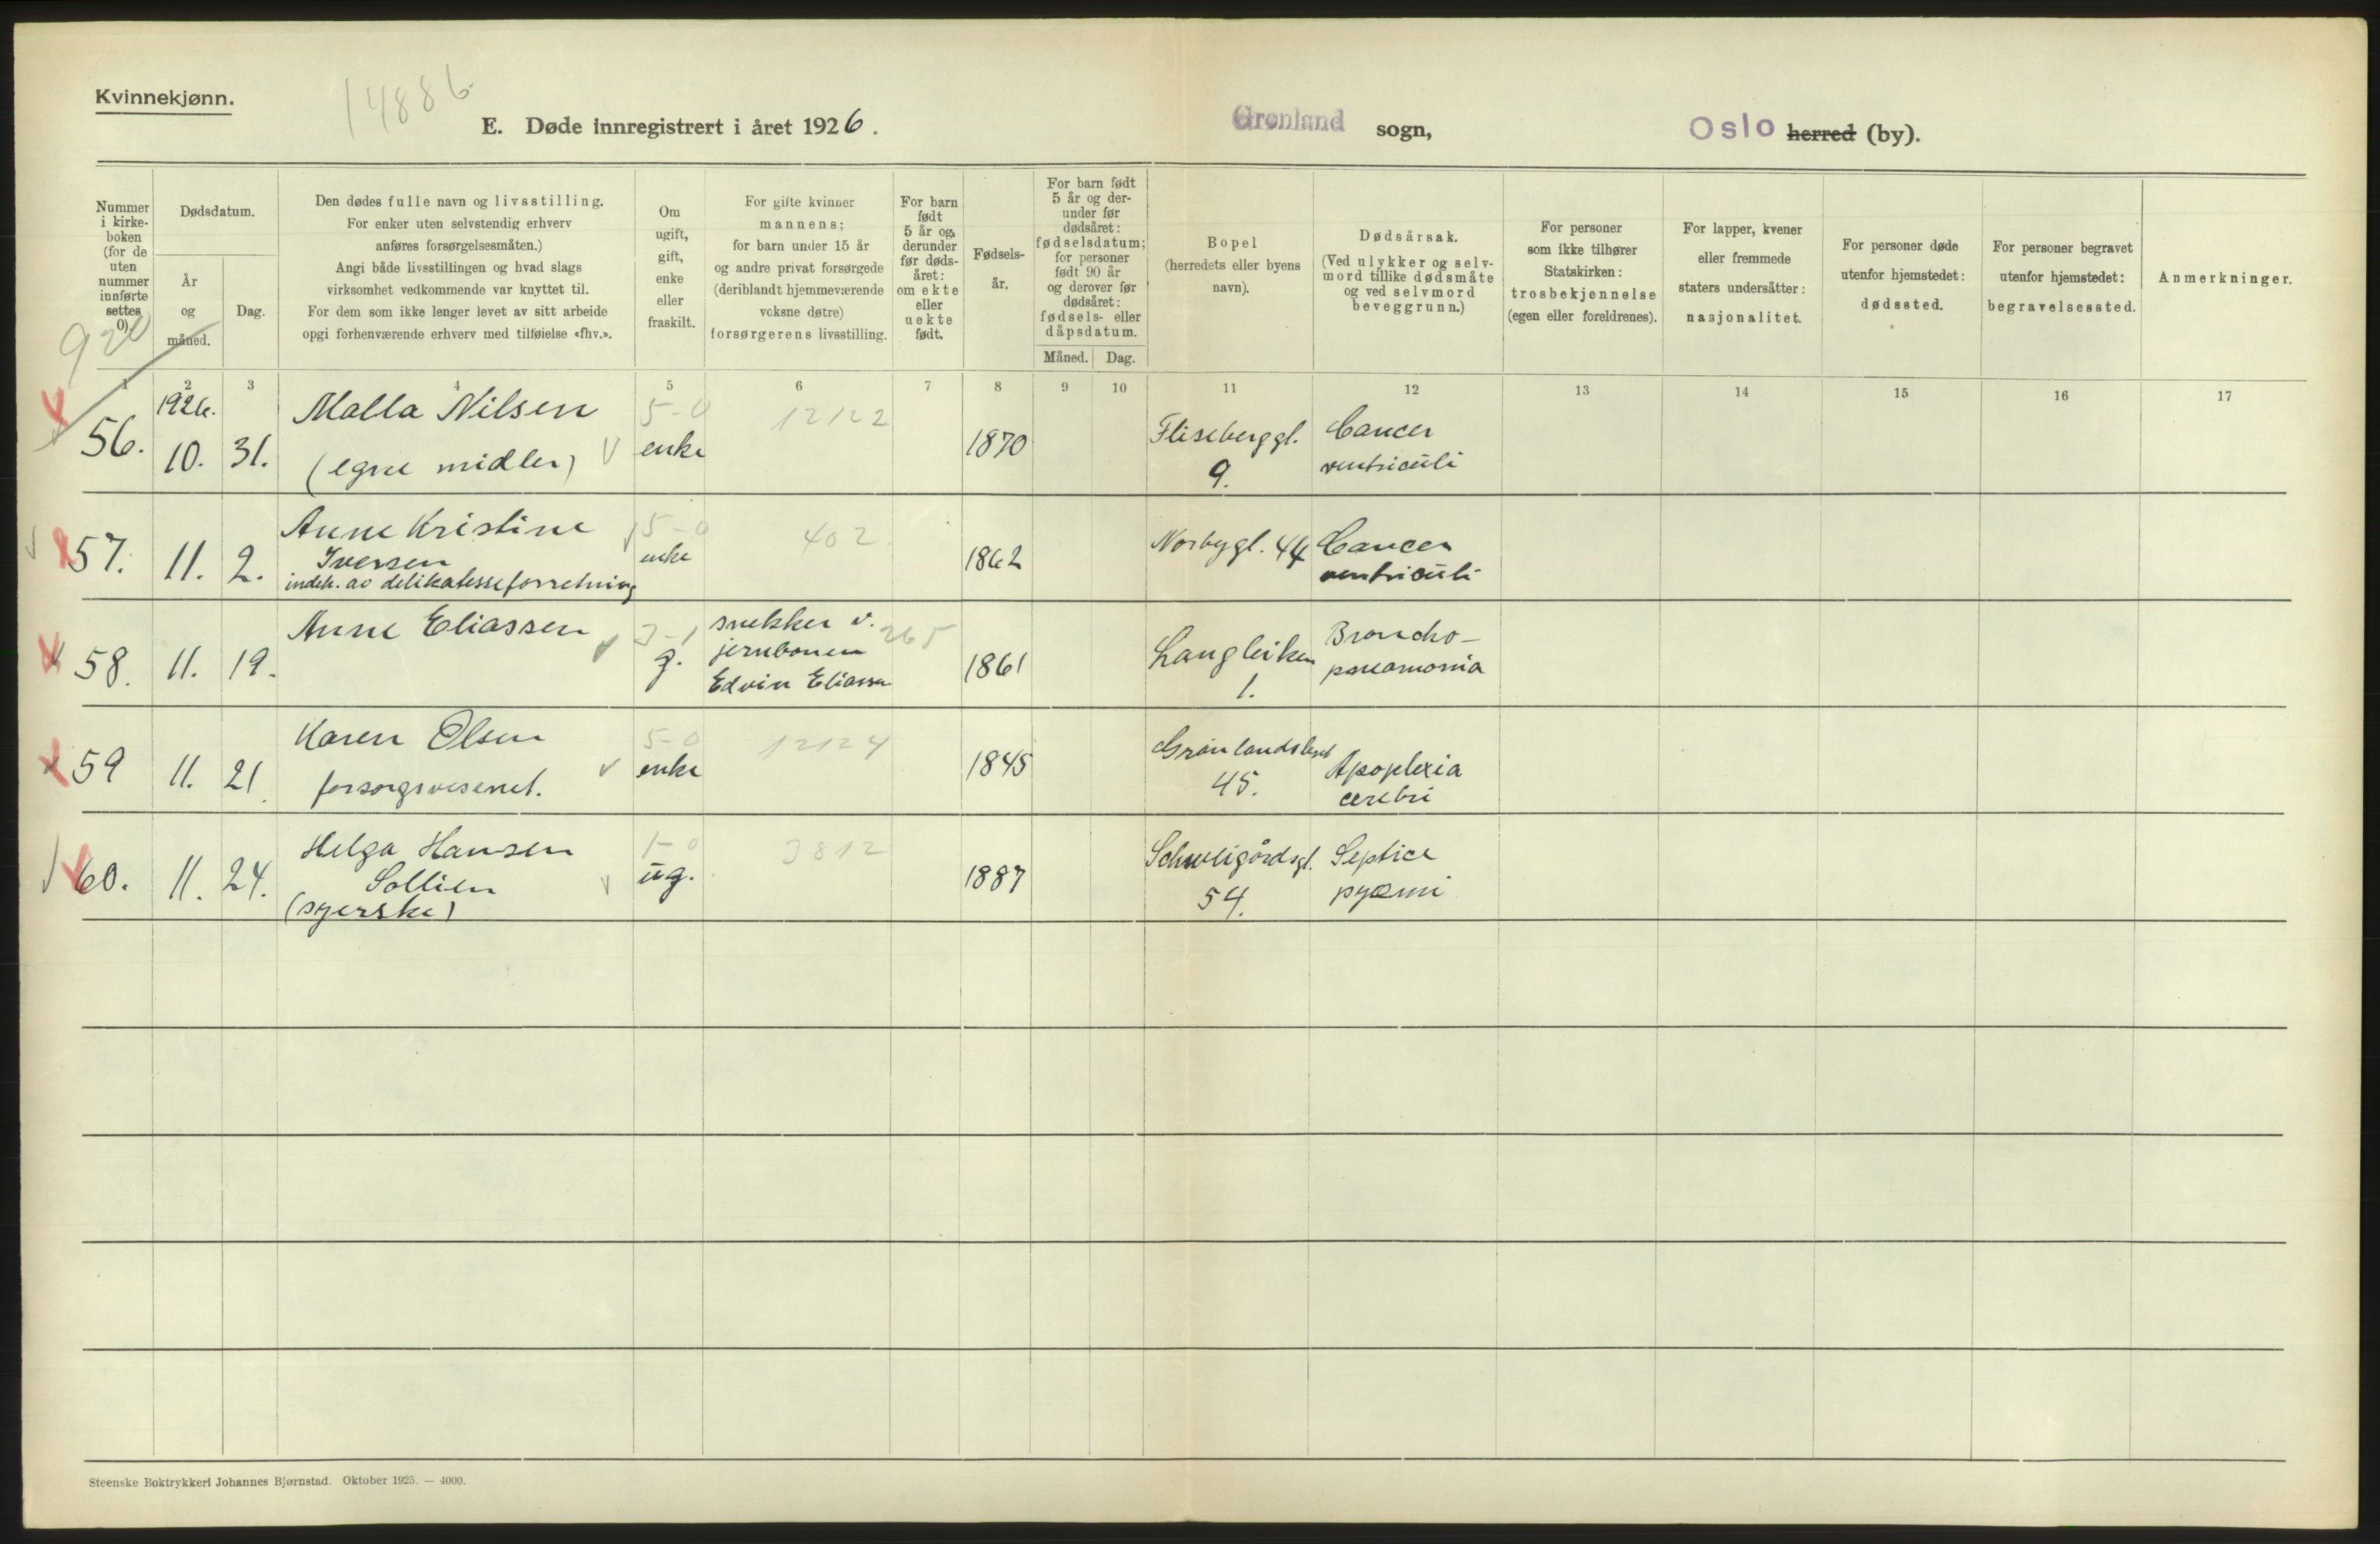 Kvinnekjønn.
14886
E. Døde innregistrert i året 1926.
Grønland sogn,
Oslo herred (by).
Nummer i kirke-boken (for de uten nummer innførte settes 0)
920
Dødsdatum.
År og måned.
Dag.
Den dødes fulle navn og livsstilling.
For enker uten selvstendig erhverv
anføres forsørgelsesmåten.)
Angi både livsstillingen og hvad slags
virksomhet vedkommende var knyttet til.
For dem som ikke lenger levet av sitt arbeide
opgi forhenværende erhverv med tilføielse «fhv.».
Om ugift, gift, enke eller fraskilt.
For gifte kvinner
mannens;
for barn under 15 år
og andre privat forsørgede
(deriblandt hjemmeværende
voksne døtre)
forsørgerens livsstilling.
For barn født 5 år og derunder før døds-året: om ekte eller uekte født.
Fødsels-år.
For barn født
5 år og der-
under før
dødsåret:
fødselsdatum;
for personer
født 90 år
og derover før
dødsåret:
fødsels- eller
dåpsdatum.
Måned. Dag.
Bopel
(herredets eller byens
navn).
Dødsårsak.
(Ved ulykker og selv-
mord tillike dødsmåte
og ved selvmord
beveggrunn.)
For personer
som ikke tilhører
Statskirken:
trosbekjennelse
(egen eller foreldrenes).
For lapper, kvener
eller fremmede
staters undersåtter:
nasjonalitet.
For personer døde
utenfor hjemstedet:
dødssted.
For personer begravet
utenfor hjemstedet:
begravelsessted.
Anmerkninger.
1 2 3 4 5 6 7 8 9 10 11 12 13 14 15 16 17
1926.
56. 10. 31. Malla Nilsen
(egne midler)
5-0
enke
12122
1870
Flisberggt.
9.
Cancer
ventriculi
57. 11. 2. Anne Kristine
Iversen
indeh. av delikatesseforretning
5-0
enke
402
1862
Norbygt. 44
Cancer
ventriculi
58. 11. 19. Anne Eliassen
3-1
g.
snekker v.
jernbanen
Edvin Eliassen
265
1861
Langleiken
1.
Broncho-
pneumonia
59 11. 21 Karen Olsen
forsorgsvesenet.
5-0
enke
12124
1845
Grønlandsleret
45.
Apoplexia
cerebri
60. 11. 24. Helga Hansen
Sollien
(syerske)
1-0
ug.
3812
1887
Schweigårdsgt.
54.
Septice
pyæmi
Steenske Boktrykkeri Johannes Bjørnstad. Oktober 1925. — 4000.